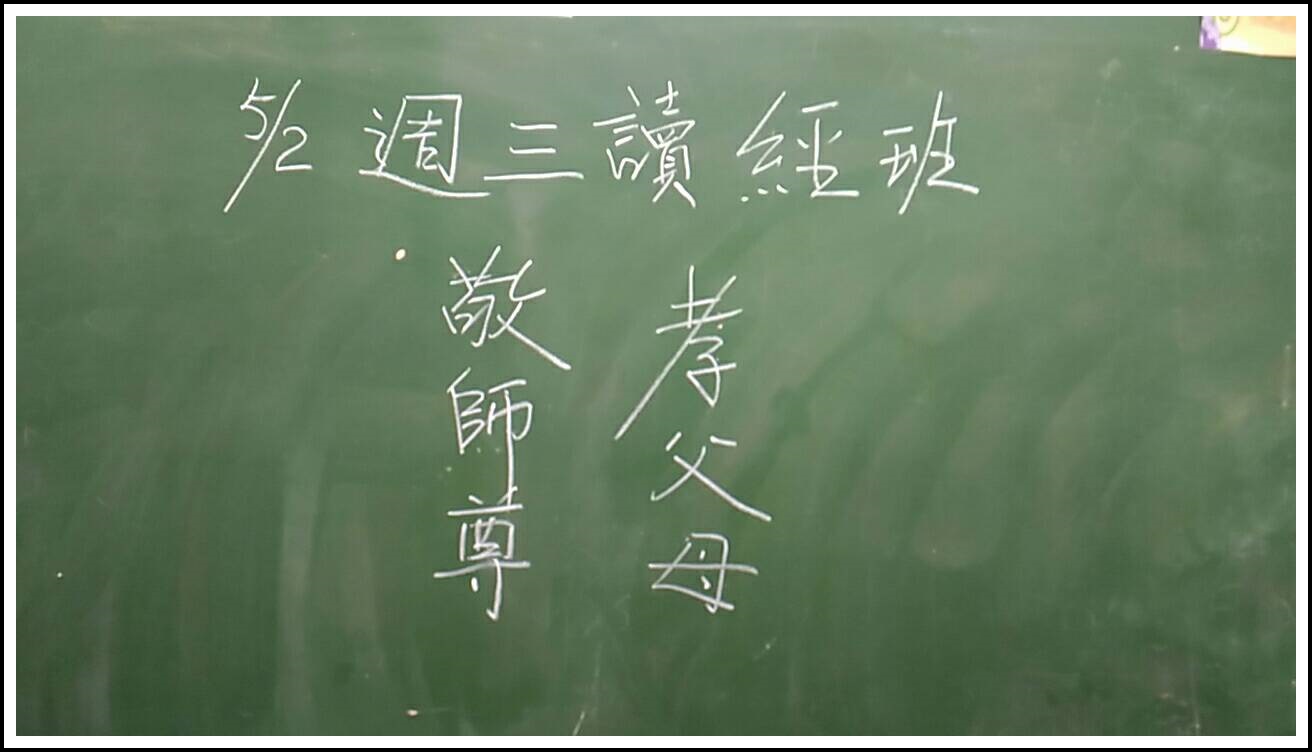 5/2 週三讀經班
孝父母
敬師尊